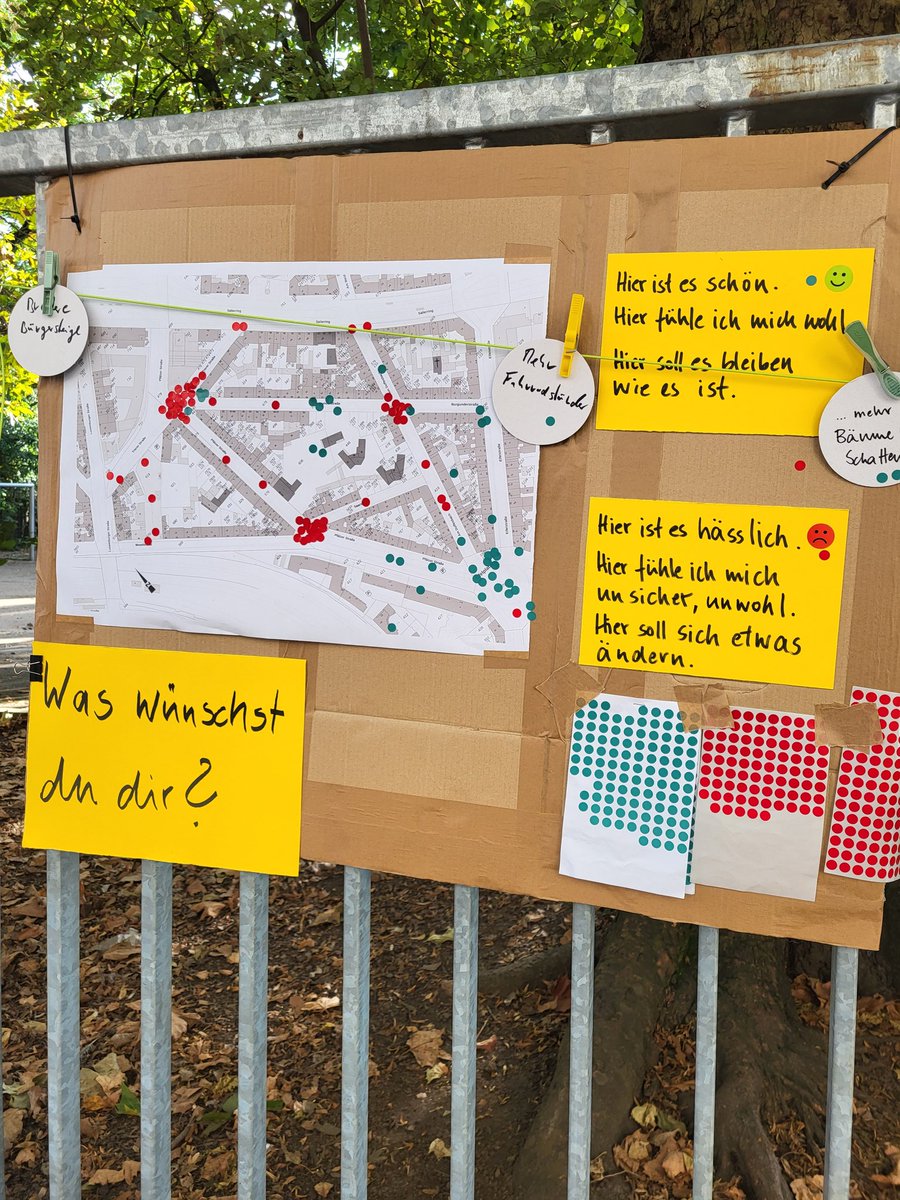 Breite
Bürgersteige
Mehr
Fahrradständer
Hier ist es schön.
Hier fühle ich mich wohl
Hier soll es bleiben
wie es ist.
... mehr
Bäume
Schatten
Hier ist es hässlich.
Hier fühle ich mich
unsicher, unwohl.
Hier soll sich etwas
ändern.
Was wünschst
du dir?